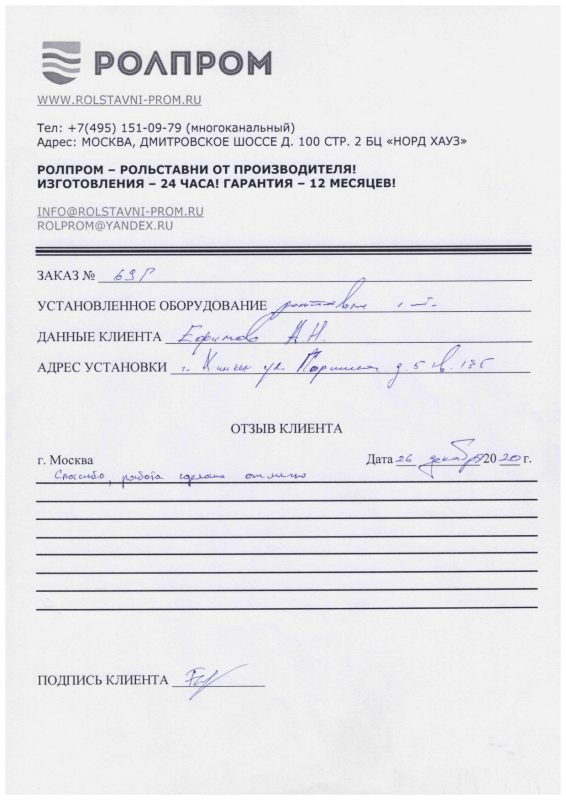 РОЛПРОМ
WWW.ROLSTAVNI-PROM.RU
Тел: +7(495) 151-09-79 (многоканальный)
Адрес: МОСКВА, ДМИТРОВСКОЕ ШОССЕ Д. 100 СТР. 2 БЦ «НОРД ХАУЗ»
РОЛПРОМ – РОЛЬСТАВНИ ОТ ПРОИЗВОДИТЕЛЯ!
ИЗГОТОВЛЕНИЯ – 24 ЧАСА! ГАРАНТИЯ – 12 МЕСЯЦЕВ!
INFO@ROLSTAVNI-PROM.RU
ROLPROM@YANDEX.RU
ЗАКАЗ № 69Г
УСТАНОВЛЕННОЕ ОБОРУДОВАНИЕ 1
ДАННЫЕ КЛИЕНТА Ефимова А.Н.
АДРЕС УСТАНОВКИ г. Химки ул. д. 5 кв. 135
ОТЗЫВ КЛИЕНТА
г. Москва Дата 26 декабря 2020 г.
Спасибо, работа сделана отлично
ПОДПИСЬ КЛИЕНТА